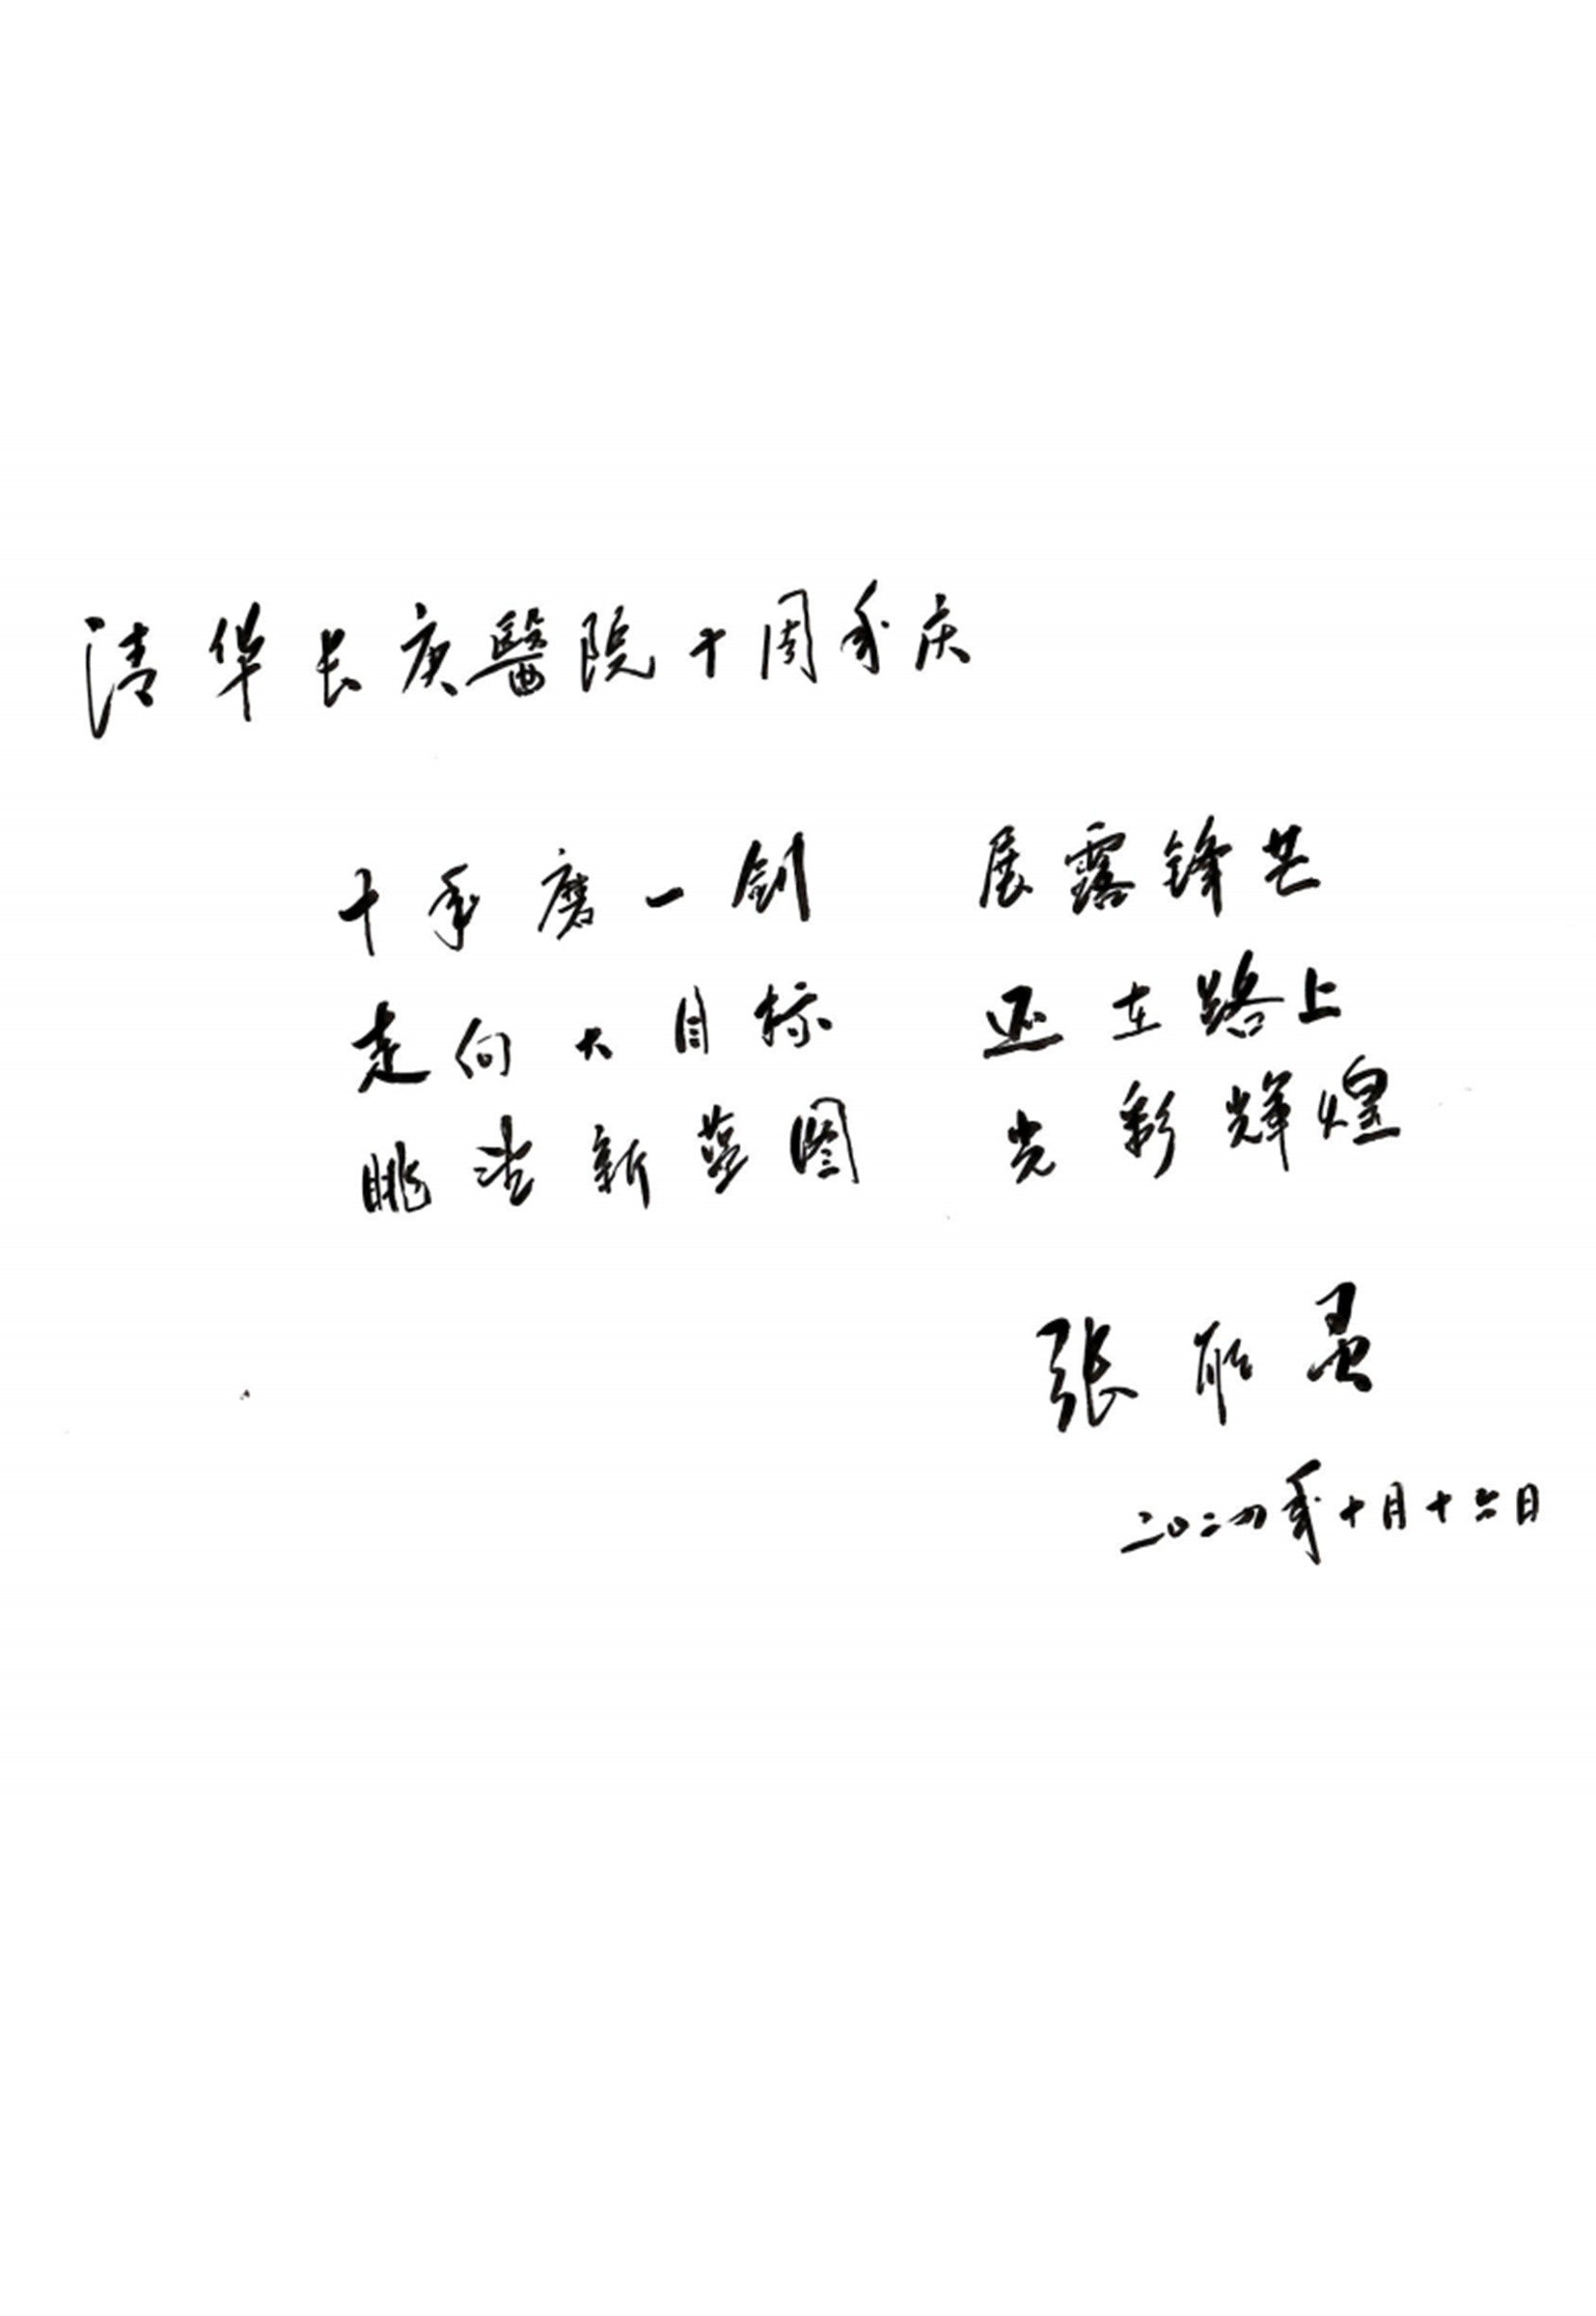 清华长庚醫院十周年庆
十年磨一劍 展露锋芒
走向大目标 还在路上
眺望新蓝图 光彩辉煌
張
二〇二四年十月十六日